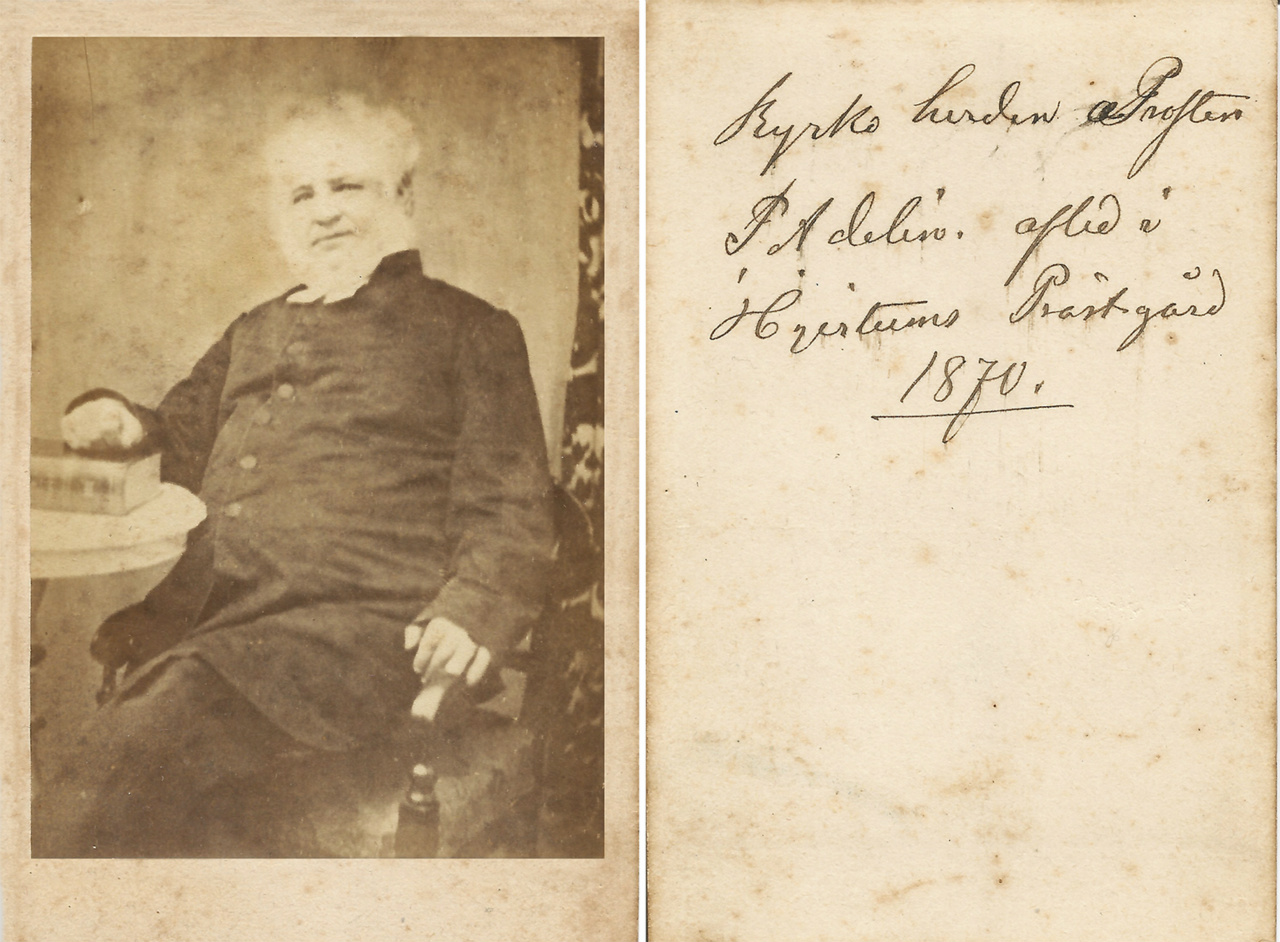 Kyrko herden o Prosten
P Adelin. afled i
Hjertums Prästgård
1870.